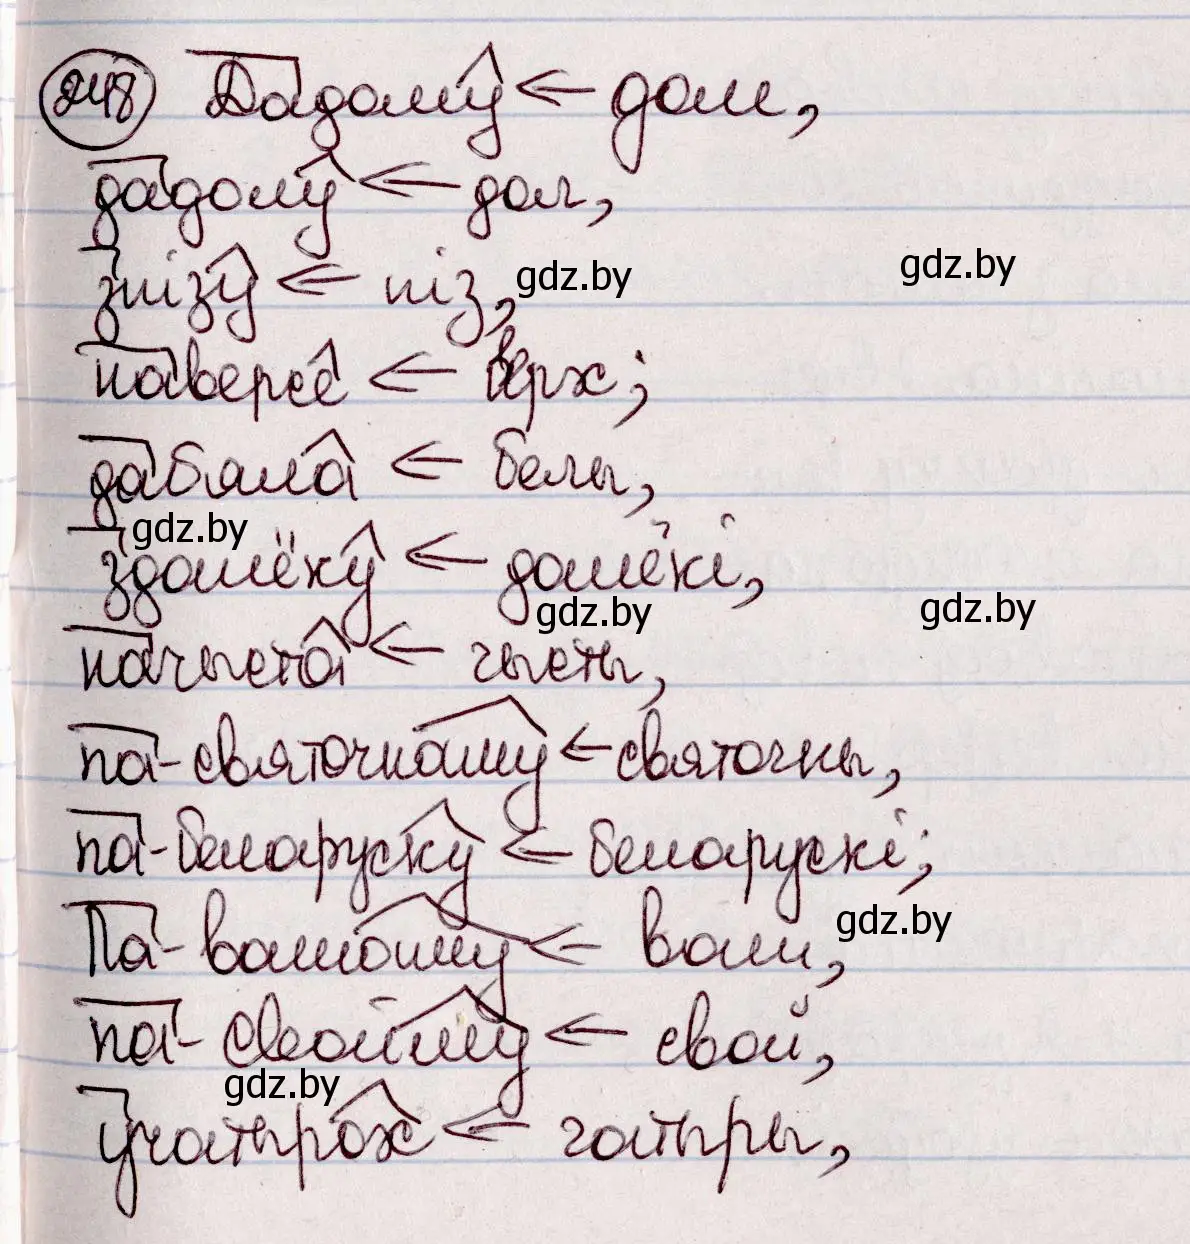 248 Дадому ← дом,
дадолу ← дол,
знізу ← ніз,
gdz.by gdz.by
наверсе ← верх;
дабяла ← белы,
gdz.by
здалёку ← далёкі,
gdz.by gdz.by
начыста ← чысты,
па-святочнаму ← святочны,
па-беларуску ← беларускі;
Па-вашаму ← ваш,
gdz.by
па-свойму ← свой,
gdz.by
учатырох ← чатыры,